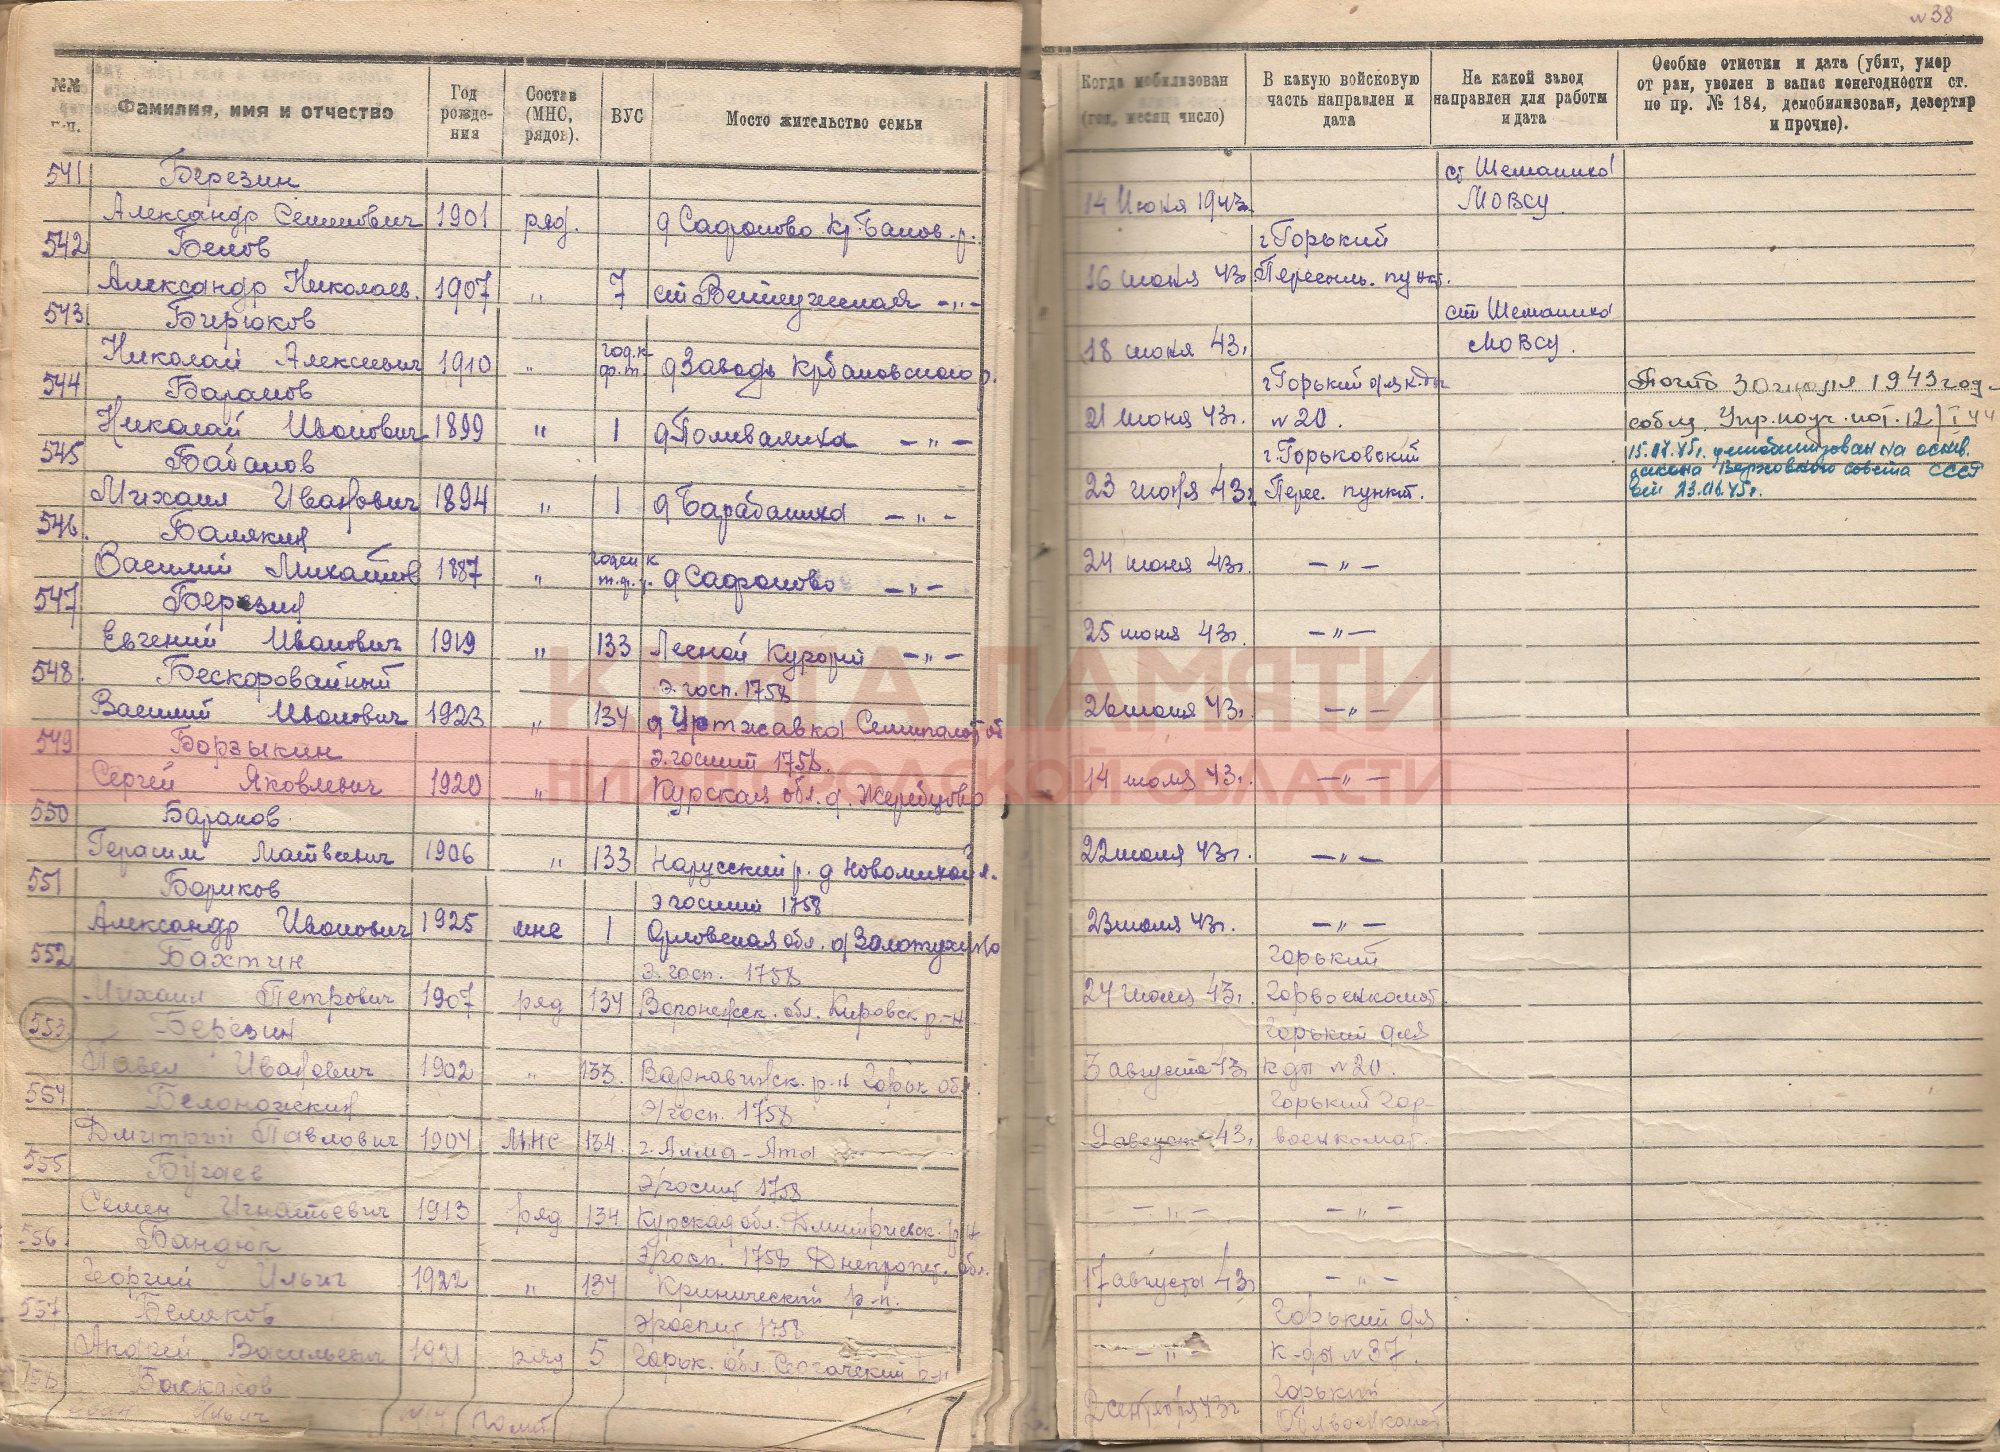 № 38
№№ п.п. Фамилия, имя и отчество Год рождения Состав (МНС, рядов). ВУС Мосто жительство семьи Когда мобилизован (год, месяц число) В какую войсковую часть направлен и дата На какой завод направлен для работы и дата Особые отметки и дата (убит, умер от ран, уволен в запас понегодности ст. по пр. № 184, демобилизован, дезертир и прочие).
541 Березин ст Шеманиха
Александр Семенович 1901 ряд. д Сафоново Кр-Баков. р. 14 Июня 1943г. МОВСУ.
542 Белов г Горький
Александр Николаев. 1907 " 7 ст Ветлужская -"- 16 июня 43г. Пересыль. пункт.
543 Бирюков ст Шеманиха
Николай Алексеевич 1910 " год. к ф. т. д Заводь Крбаковского р. 18 июня 43г. МОВСУ.
544 Баранов г Горький для к-ды
Николай Иванович 1899 " 1 д Поливаниха -"- 21 июня 43г. №20.
545 Бабанов г. Горьковский
Михаил Иванович 1894 " 1 д Барабаниха -"- 23 июня 43г Перес. пункт.
15.07.45г. демобилизован на основ. закона Верховного совета СССР
от 23.06.45г.
546. Балякин
Василий Михайлов 1887 " годен к т. ф. д Сафоново -"- 24 июня 43г. -"-
547 Березин
Евгений Иванович 1919 " 133 Лесной Курорт -"- 25 июня 43г. -"-
548. Бескоровайный Э. госп. 1758
Василий Иванович 1923 " 134 26 июня 43г. -"-
549 Борзыкин Э. госпит 1758.
Сергей Яковлевич 1920 " 1 Курская обл. д. Жеребцово 14 июля 43г. -"-
550 Баранов
Герасим Матвеевич 1906 " 133 Нарусский р. д 22 июля 43г. -"-
551 Бориков Э госпит 1758
Александр Иванович 1925 мнс 1 Орловская обл. д Золотухино 23 июля 43г. -"-
552 Бахтин Э. госп. 1758 Горький
Михаил Петрович 1907 ряд 134 Воронежск. обл. Кировск р-н 24 июля 43г. Горвоенкомат
553 Березин Горький для
Павел Иванович 1902 " 133. Варнавинск. р-н Горьк обл. 3 августа 43г к-ды №20.
554 Белоножкин Э/госп. 1758 Горький Гор-
Дмитрий Павлович 1904 МНС 134 г. Алма-Ата 9 август 43г военкомат.
555 Бугаев Э/госпит 1758
Семен Игнатьевич 1913 ряд 134 Курская обл. Дмитриевск. р-н -"- -"-
556 Бандюк Э/госп. 1758 Днепропет. обл.
Георгий Ильич 1922 " 134 Кринический р-н. 17 августа 43г -"-
557 Беляков Э/госпит 1758 Горький для
Андрей Васильевич 1921 ряд 5 Горьк. обл. Сергачский р-н -"- к-ды №37.
558 Баскаков Горький
Иван Ильич 2 сентября 43г Облвоенкомат
КНИГА ПАМЯТИ
НИЖЕГОРОДСКОЙ ОБЛАСТИ